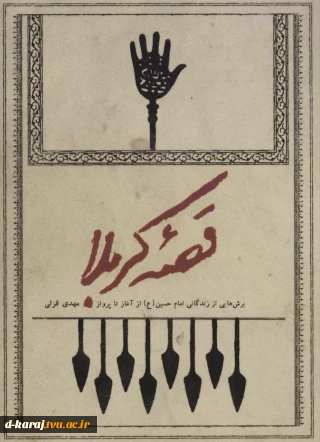 قصهٔ کربلا
برش‌هایی از زندگانی امام حسین (ع) از آغاز تا پرواز / مهدی قزلی
d-karaj.tvu.ac.ir